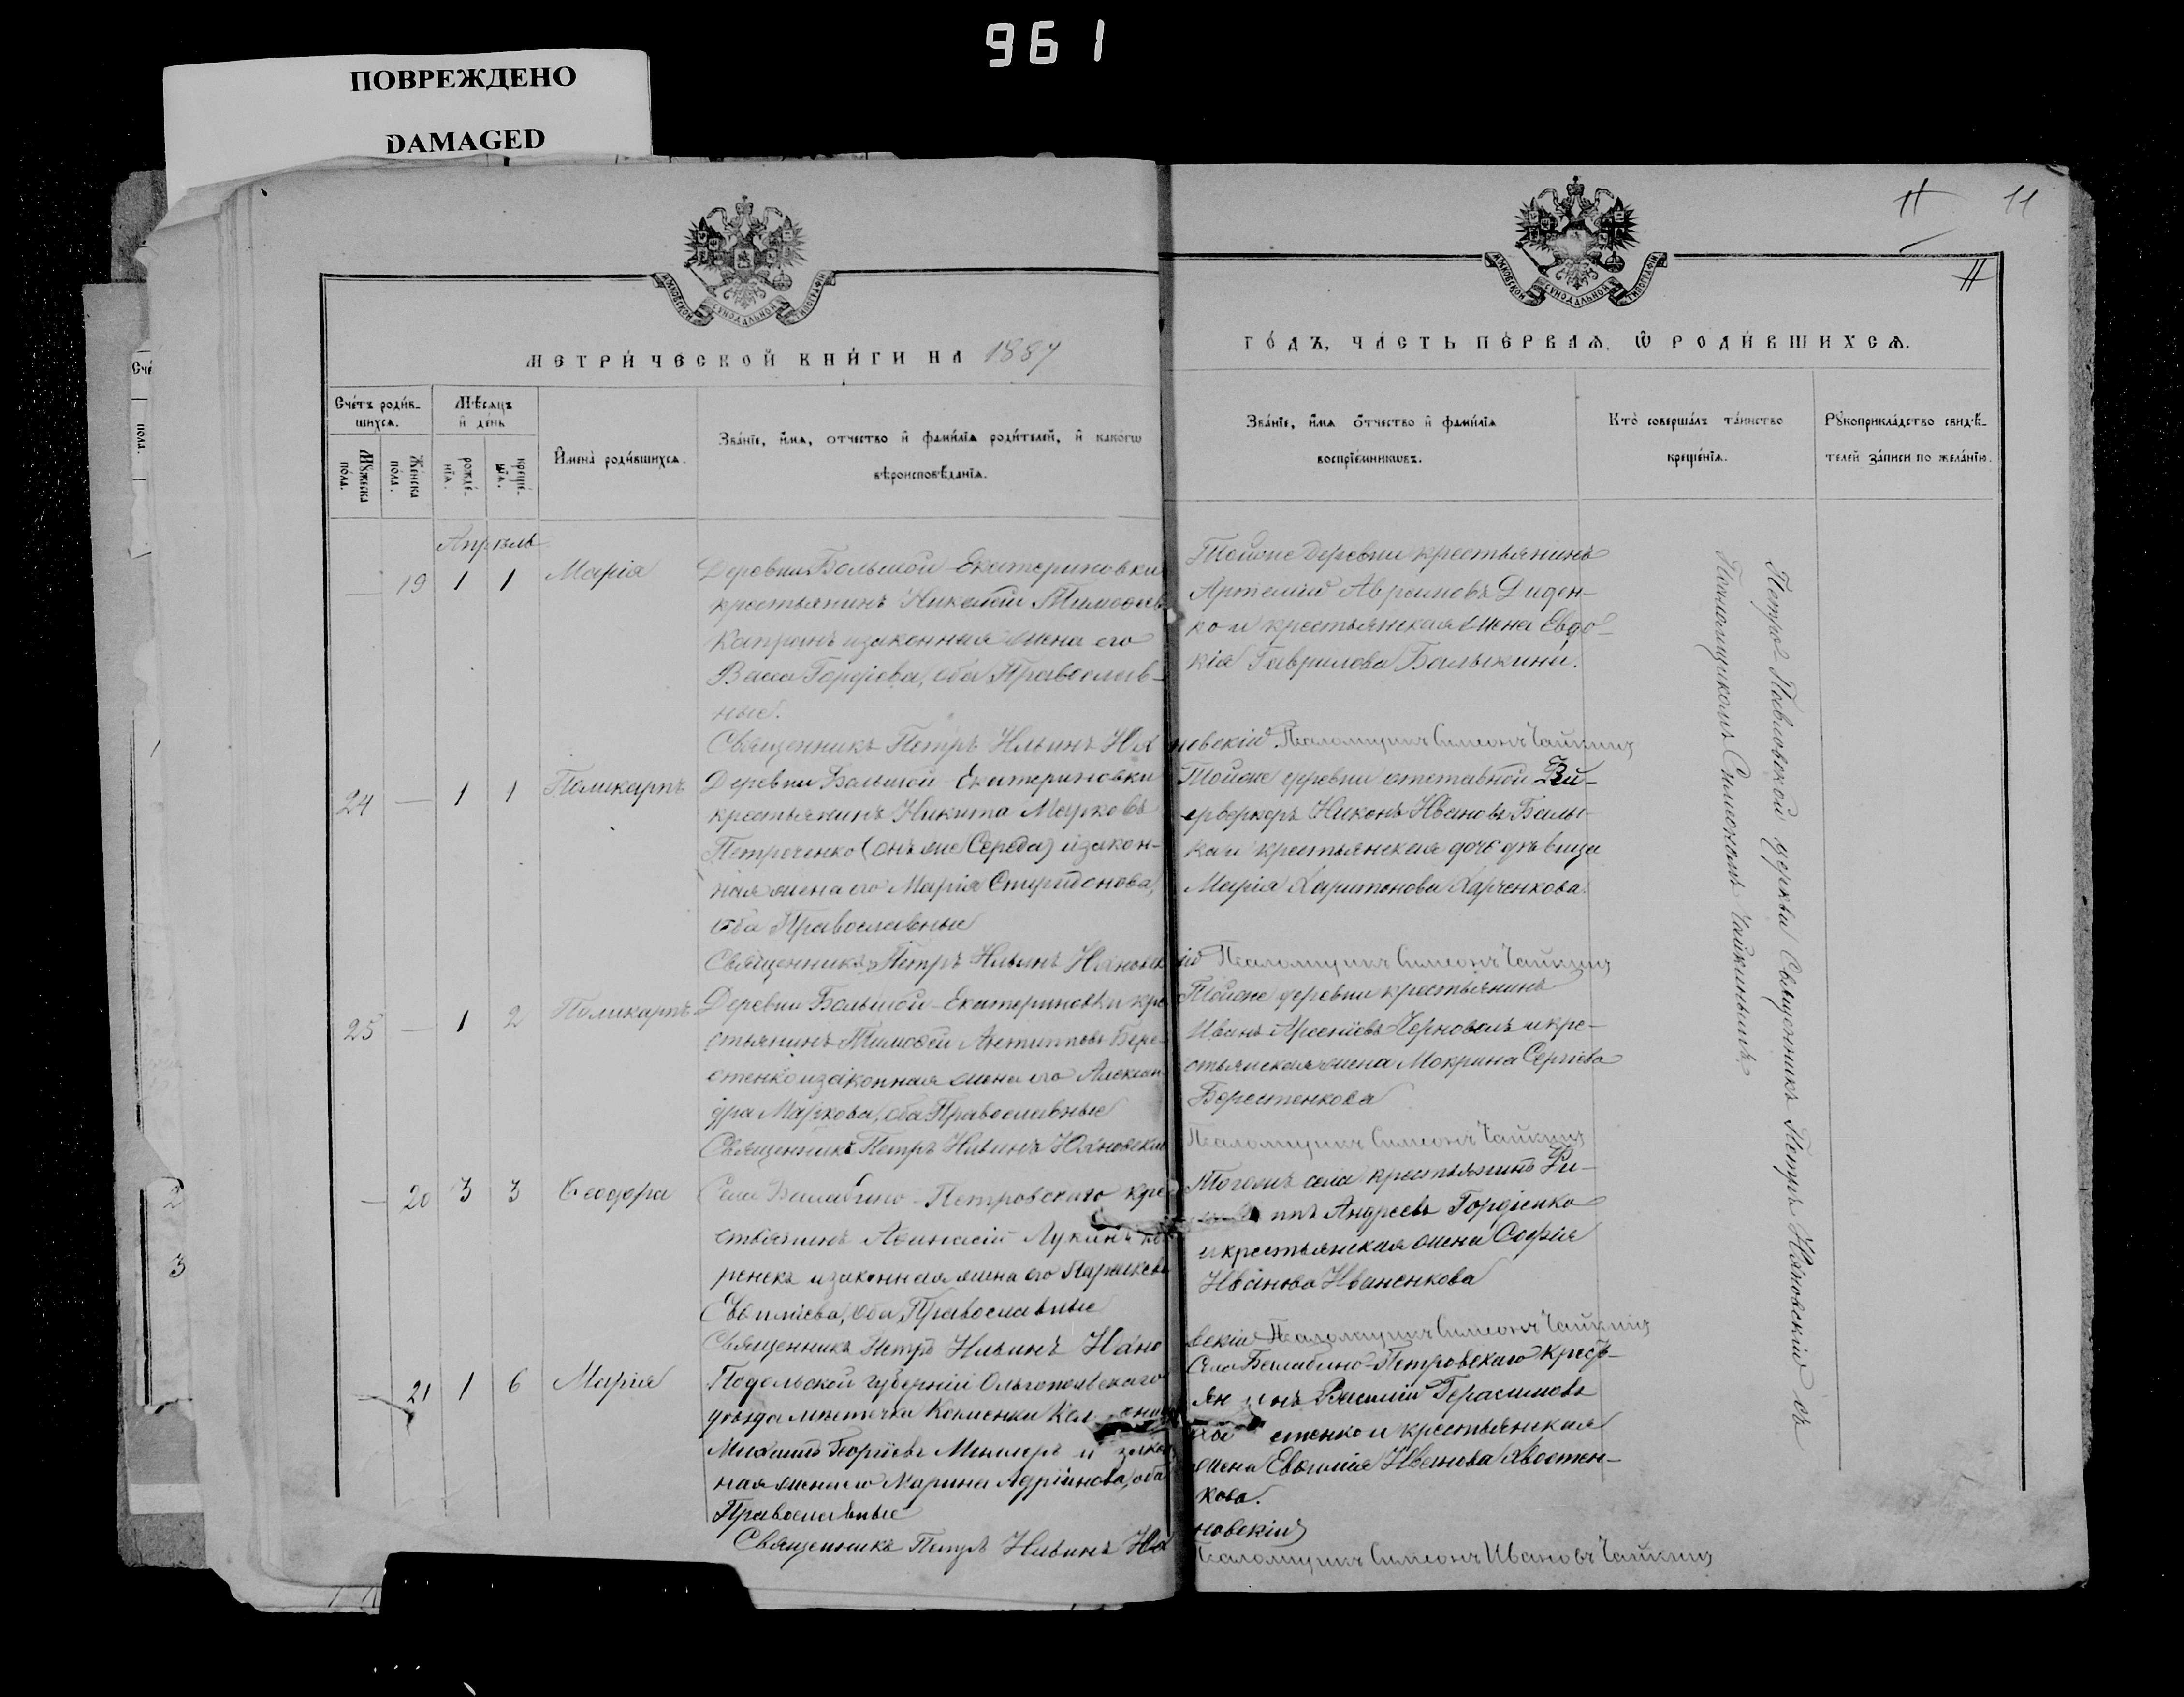 961
ПОВРЕЖДЕНО
DAMAGED
11 11
11
МЕТРИ́ЧЕСКОЙ КНИ́ГИ НА 1887
ГО́ДЪ, ЧА́СТЬ ПЕ́РВАѦ, Ѿ РОДИ́ВШИХСѦ.
Сче́тъ роди́в-
шихсѧ.
Мꙋжеска по́ла.
Же́нска по́ла.
Мѣ́сѧцъ и де́нь
рожде́-
нїѧ.
креще́-
нїѧ.
И҆мена̀ роди́вшихсѧ.
Зва́нїе, и҆́мѧ, о҆́тчество и҆ фами́лїѧ роди́телей, и҆ како́гѡ
вѣроисповѣ́данїѧ.
Зва́нїе, и҆́мѧ о҆́тчество и҆ фами́лїѧ
воспрїе́мникѡвъ.
Кто̀ соверша́лъ та́инство
креще́нїѧ.
Рꙋкоприкла́дство свидѣ́-
телей за́писи по жела́нїю.
Апрѣль
— 19 1 1 Марія
Деревни Большой-Екатериновки
крестьянинъ Николай Тимофеевъ
Капранъ и законная жена его
Васса Гордіева, оба Православ-
ные.
Священникъ Петръ Ильинъ Юхновскій Псаломщикъ Симеонъ Чайкинъ
Тойже деревни крестьянинъ
Артемій Аврамовъ Диден-
ко и крестьянская жена Евдо-
кія Гаврилова Балыкина.
24 — 1 1 Поликарпъ
Деревни Большой-Екатериновки
крестьянинъ Никита Марковъ
Петреченко (онъ же Середа) и закон-
ная жена его Марія Спиридонова,
оба Православные
Священникъ Петръ Ильинъ Юхновскій Псаломщикъ Симеонъ Чайкинъ
Тойже деревни отставной Фей-
ерверкеръ Никонъ Ивановъ Балы-
ка и крестьянская дочь дѣвица
Марія Харитонова Харченкова.
25 — 1 2 Поликарпъ
Деревни Большой-Екатериновки кре-
стьянинъ Тимофей Антиповъ Бере-
стенко и законная жена его Алексан-
дра Маркова, оба Православные
Священникъ Петръ Ильинъ Юхновскій Псаломщикъ Симеонъ Чайкинъ
Тойже деревни крестьянинъ
Иванъ Арсеніевъ Черноволъ и кре-
стьянская жена Мокрина Сергіева
Берестенкова
— 20 3 3 Ѳеодора
Села Балабино-Петровскаго кре-
стьянинъ Аѳанасій Лукинъ
и законная жена его Параскева
оба Православные
Священникъ Петръ Ильинъ Юхновскій Псаломщикъ Симеонъ Чайкинъ
Тогожъ села крестьянинъ Фи-
ппъ Андреевъ Гордіенко
и крестьянская жена Софія
Иванова Иваненкова
— 21 1 6 Марія
Подольской губерніи Ольгопольскаго
уѣзда мѣстечка Каменки
Михаилъ Георгіевъ и закон-
ная жена его Марина Адріанова, оба
Православные
Священникъ Петръ Ильинъ Юхновскій
Псаломщикъ Симеонъ Ивановъ Чайкинъ
Села Балабино-Петровскаго крест-
янинъ Василій Герасимовъ
стенко и крестьянская
жена Евѳимія Иванова Хвостен-
кова.
Петро-Павловской церкви Священникъ Петръ Юхновскій съ
Псаломщикомъ Симеономъ Чайкинымъ